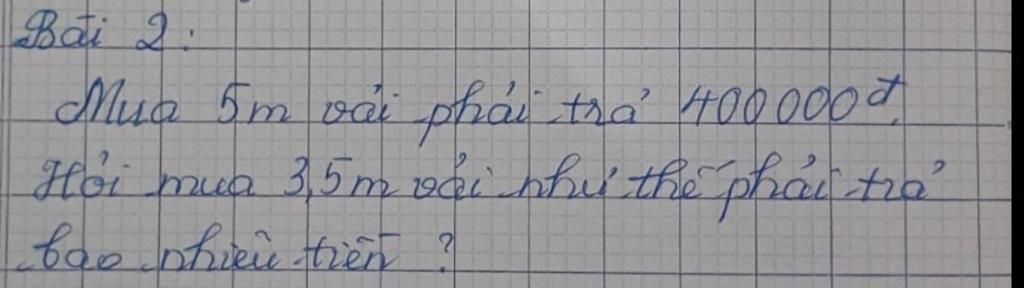 Bài 2:
Mua 5m vải phải trả 400 000đ.
Hỏi mua 3,5m vải như thế phải trả
bao nhiêu tiền ?